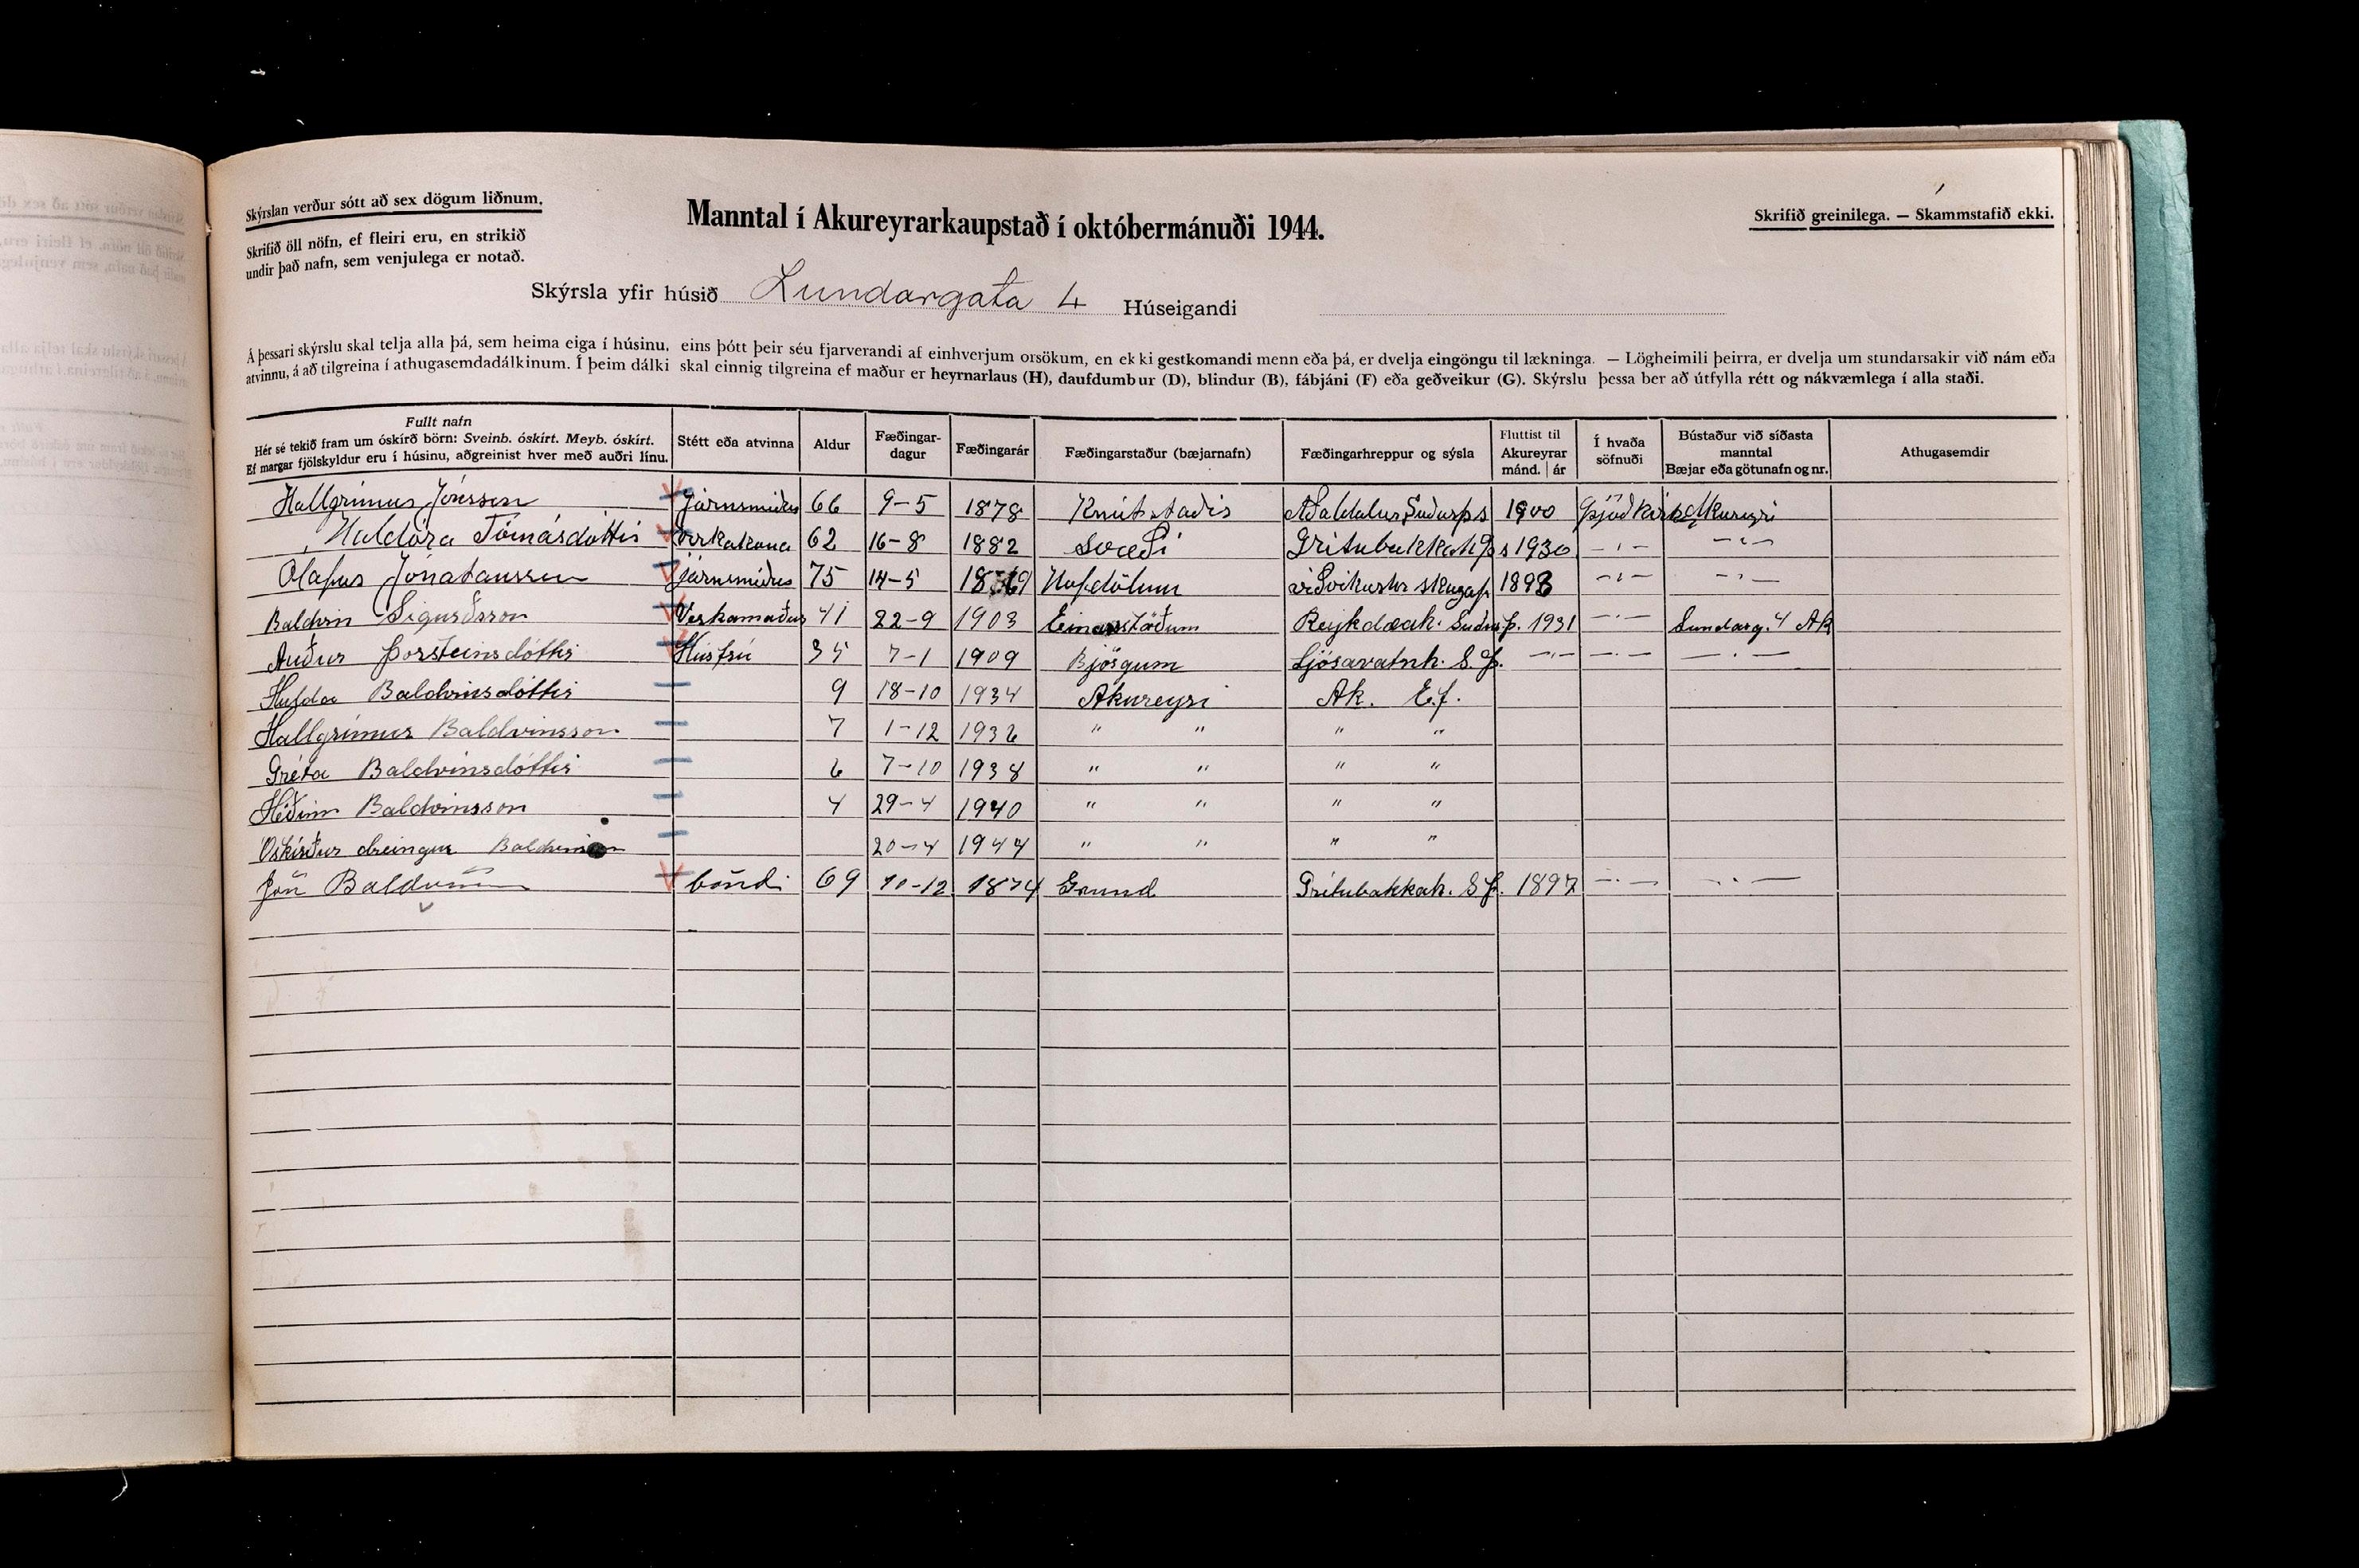 Skýrslan verður sótt að sex dögum liðnum.
Skrifið öll nöfn, ef fleiri eru, en strikið
undir það nafn, sem venjulega er notað.
Manntal í Akureyrarkaupstað í októbermánuði 1944.
Skrifið greinilega. — Skammstafið ekki.
Skýrsla yfir húsið Lundargata 4 Húseigandi
Á þessari skýrslu skal telja alla þá, sem heima eiga í húsinu, eins þótt þeir séu fjarverandi af einhverjum orsökum, en ekki gestkomandi menn eða þá, er dvelja eingöngu til lækninga. — Lögheimili þeirra, er dvelja um stundarsakir við nám eða
atvinnu, á að tilgreina í athugasemdadálkinum. Í þeim dálki skal einnig tilgreina ef maður er heyrnarlaus (H), daufdumbur (D), blindur (B), fábjáni (F) eða geðveikur (G). Skýrslu þessa ber að útfylla rétt og nákvæmlega í alla staði.
Fullt nafn
Hér sé tekið fram um óskírð börn: Sveinb. óskírt. Meyb. óskírt.
Ef margar fjölskyldur eru í húsinu, aðgreinist hver með auðri línu.
Stétt eða atvinna
Aldur
Fæðingar-
dagur
Fæðingarár
Fæðingarstaður (bæjarnafn)
Fæðingarhreppur og sýsla
Fluttist til
Akureyrar
mánd. | ár
Í hvaða
söfnuði
Bústaður við síðasta
manntal
Bæjar eða götunafn og nr.
Athugasemdir
Hallgrímur Jónsson Járnsmiður 66 9-5 1878 Knútstaðir Aðaldalur Suðurþs 1900 Þjóðkirk Akureyri
Halldóra Tómásdóttir verkakona 62 16-8 1882 Svæði Grítubakkah Þs 1930 -"- -"-
Olafur Jónatansson járnsmiður 75 14-5 1869 Hofdölum viðvikurhr skagaf 1898 -"- -"-
Baldvin Sigurðsson Verkamaður 41 22-9 1903 Einarsstöðum Reykdælah. Suðurþ. 1931 -"- Lundarg. 4 Ak
Auður Þorsteinsdóttir Húsfrú 35 7-1 1909 Björgum Ljósavatnh. S.Þ. -"- -"- -"-
Hulda Baldvinsdóttir 9 18-10 1934 Akureyri Ak. Ef.
Hallgrímur Baldvinsson 7 1-12 1936 " " " "
Gréta Baldvinsdóttir 6 7-10 1938 " " " "
Héðinn Baldvinsson 4 29-4 1940 " " " "
Óskírður drengur Baldvinsson 20-4 1944 " " " "
Jón Baldvin bóndi 69 10-12 1874 Grund Grítubakkah. SÞ. 1897 -"- -"-